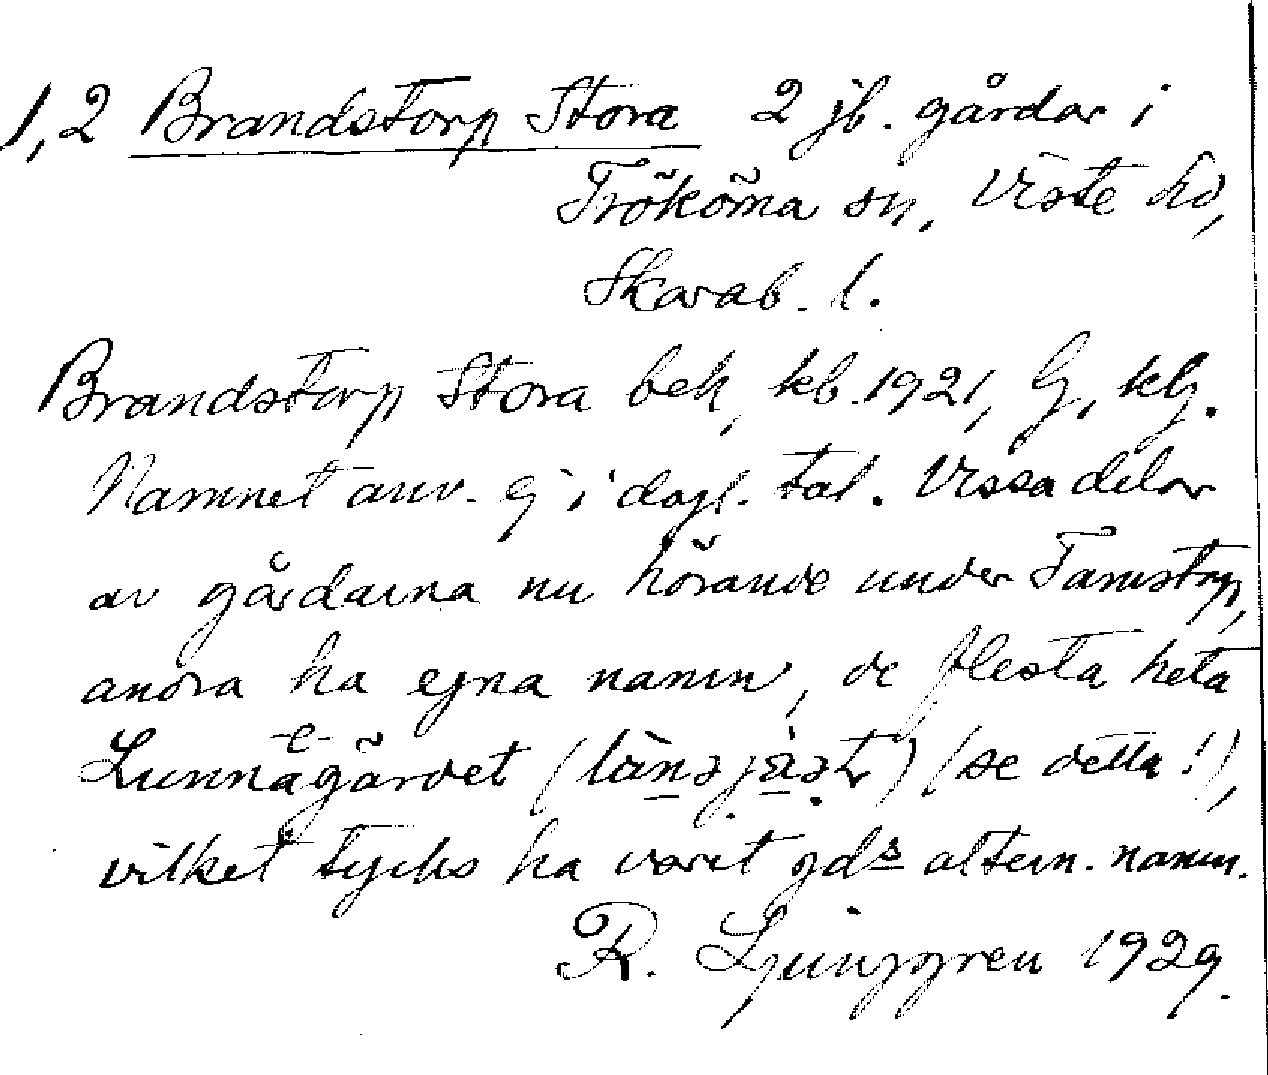 1,2 Brandstorp Stora 2 jb. gårdar i
Trökörna sn, Viste hd,
Skarab. l.
Brandstorp Stora bek, kb. 1921, G, klg.
Namnet anv. ej i dagl. tal. Vissa delar
av gårdarna nu hörande under Farmstorp,
andra ha egna namn, de flesta heta
-e-
Lunnagärdet (se detta!),
vilket tycks ha varit gds altern. namn.
R. Ljunggren 1929.